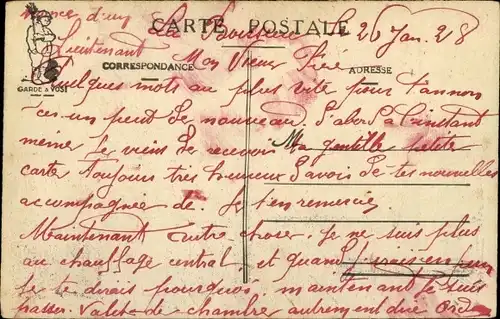 CARTE POSTALE
le 26 Jan. 28
Lieutenant
Mon Vieux Fréré
CORRESPONDANCE
ADRESSE
GARDE À VOUS
quelques mots au plus vite pour t'annon
ces un peut de nouveau. D'abord a l'instant
meme je viens de recevoir Ma gentille petite
carte toujours très heureux d'avoir de tes nouvelles
accompagnée de. Je t'en remercie.
Maintenant autre chose. Je ne suis plus
au chauffage central. et quand
je te dirais pourquoi maintenant je suis
passer. Valet de chambre autrement due Ord